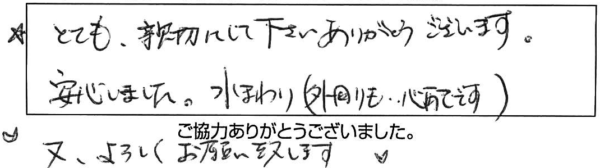 ☆ とても、親切にして下さいありがとうございます。
安心しました。水まわり(外回りも‥心配です)
ご協力ありがとうございました。
又、よろしくお願い致します